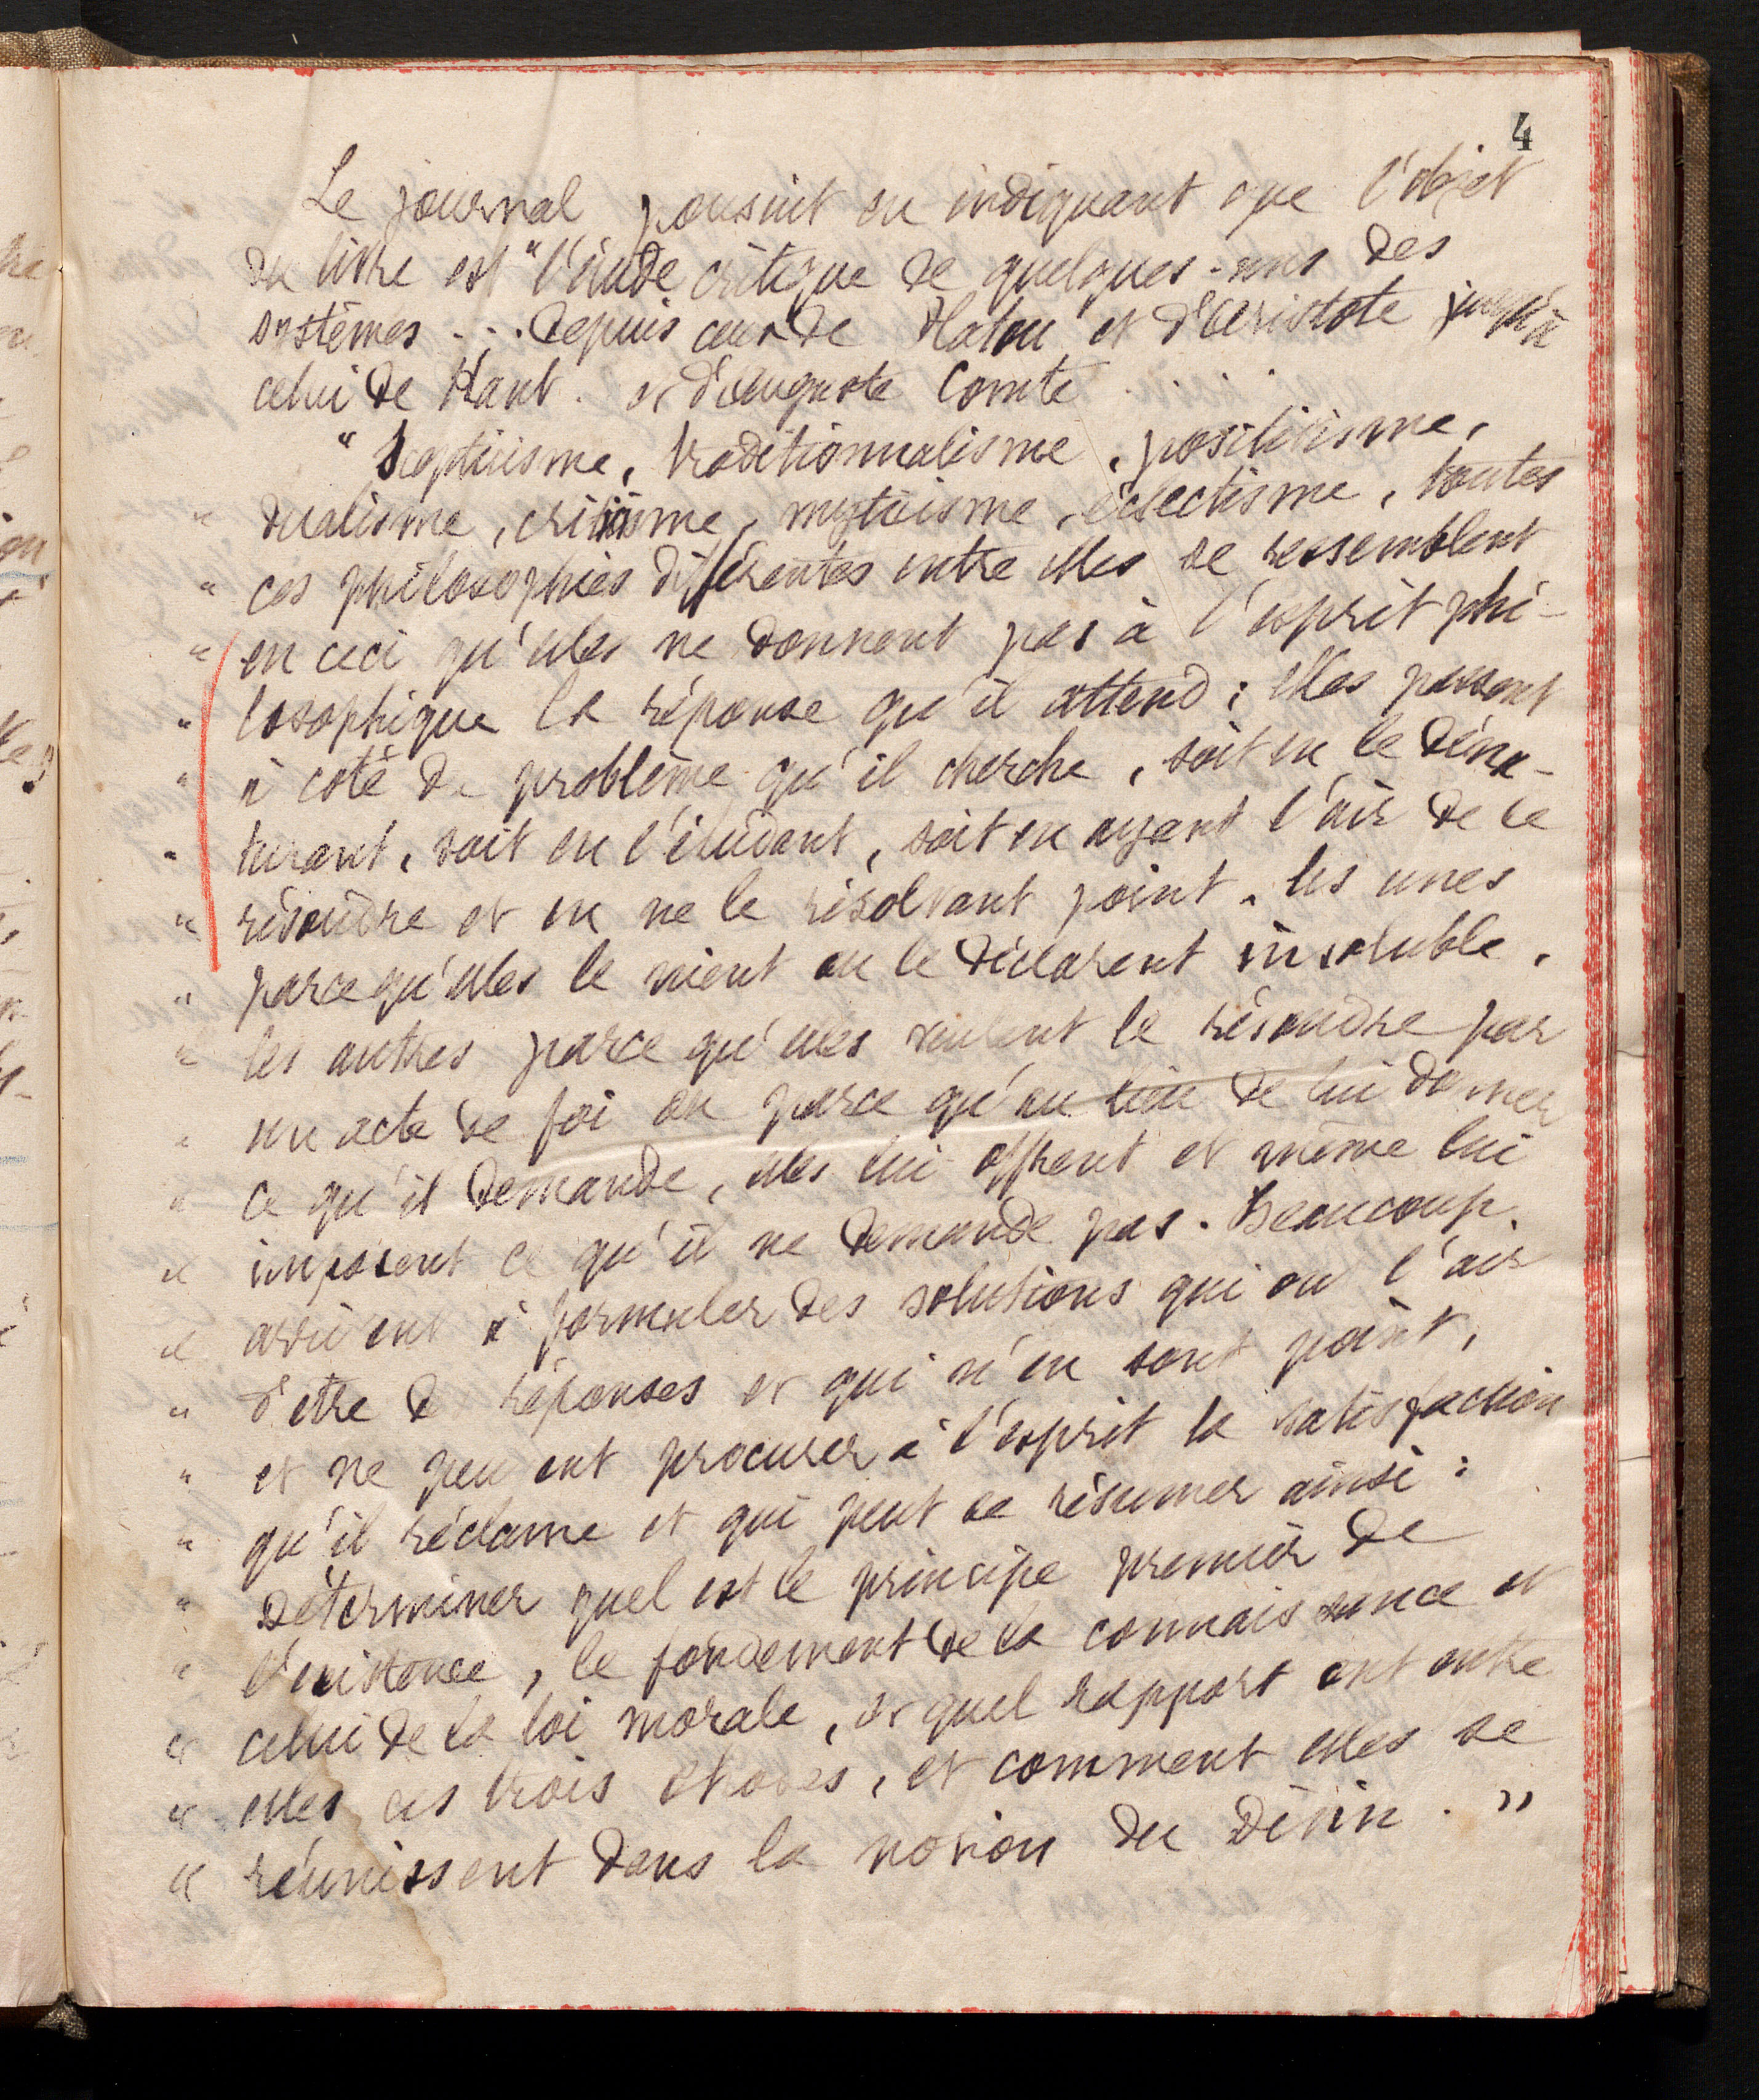 4
Le journal poursuit en indiquant que l'objet
du livre est "l'étude critique de quelques-uns des
systèmes ... depuis ceux de Platon et d'Aristote jusqu'à
celui de Kant . et d'Auguste Comte . . . .
" Scepticisme, traditionnalisme, positivisme,
" dualisme, criticisme, mysticisme, éclectisme, toutes
" ces philosophies différentes entre elles se ressemblent
" en ceci qu'elles ne donnent pas à l'esprit phi-
" losophique la réponse qu'il attend ; elles passent
" à coté du problème qu'il cherche, soit en le déna-
" turant, soit en l'éludant, soit en ayant l'air de le
" résoudre et en ne le résolvant point. les unes
" parce qu'elles le nient ou le déclarent insoluble,
" les autres parce qu'elles veulent le résoudre par
" un acte de foi ou parce qu'au lieu de lui donner
" ce qu'il demande, elles lui offrent et même lui
" imposent ce qu'il ne demande pas. Beaucoup
" arrivent à formuler des solutions qui on l'air
" d'etre de réponses et qui n'en sont point,
" et ne peuvent procurer à l'esprit la satisfaction
" qu'il réclame et qui peut se résumer ainsi :
" Déterminer quel est le principe premier de
" l'existence, le fondement de la connaissance et
" celui de la loi morale, et quel rapport ont entre
" elles ces trois choses, et comment elles se
" réunissent dans la notion du Divin . "